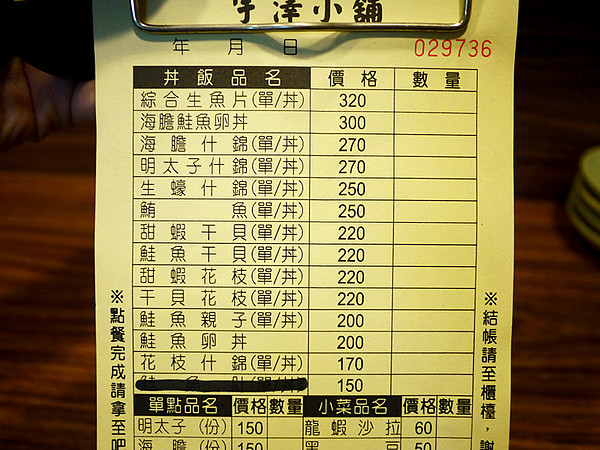 宇澤小舖
年 月 日 029736
丼飯品名 價格 數量
綜合生魚片(單/丼) 320
海膽鮭魚卵丼 300
海膽什錦(單/丼) 270
明太子什錦(單/丼) 270
生蠔什錦(單/丼) 250
鮪魚(單/丼) 250
甜蝦干貝(單/丼) 220
鮭魚干貝(單/丼) 220
甜蝦花枝(單/丼) 220
干貝花枝(單/丼) 220
鮭魚親子(單/丼) 200
鮭魚卵丼 200
花枝什錦(單/丼) 170
150
單點品名 價格 數量 小菜品名 價格 數量
明太子(份) 150 龍蝦沙拉 60
海膽(份) 150 黑豆 50
※點餐完成請拿至吧
※結帳請至櫃檯，謝